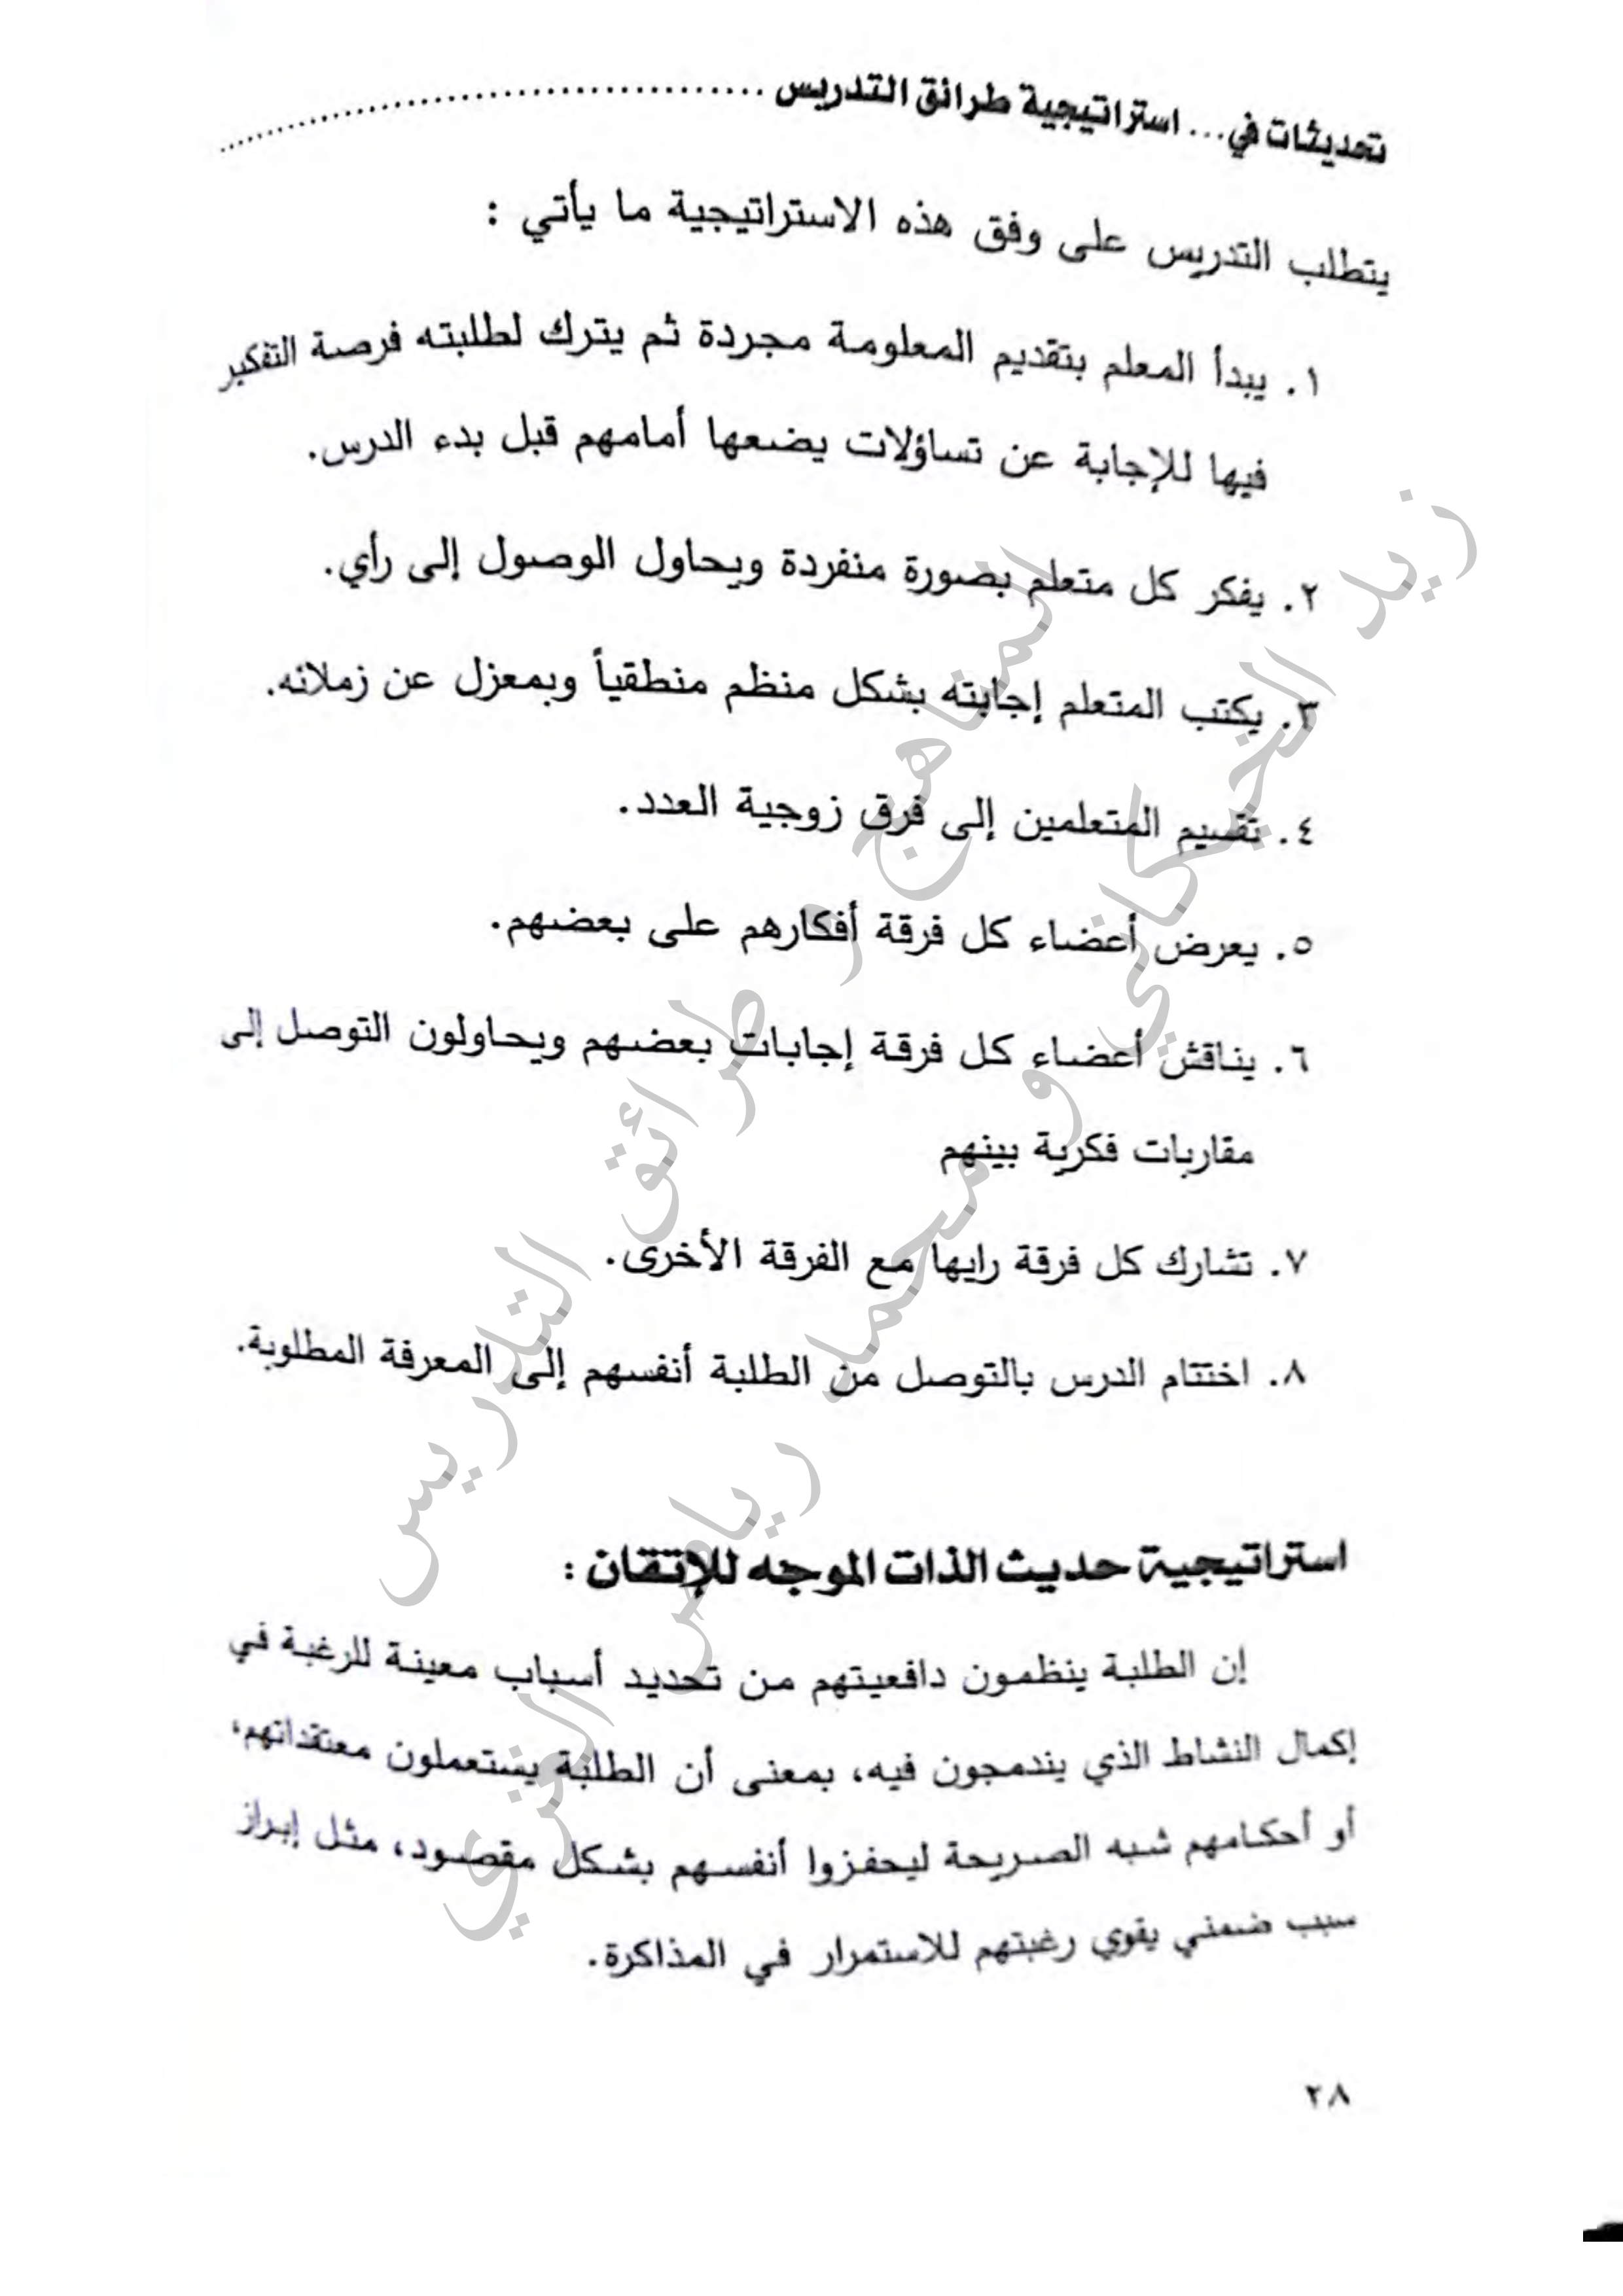 تحديثات في... استراتيجية طرائق التدريس
يتطلب التدريس على وفق هذه الاستراتيجية ما يأتي :
١. يبدأ المعلم بتقديم المعلومة مجردة ثم يترك لطلبته فرصة التفكير
فيها للإجابة عن تساؤلات يضعها أمامهم قبل بدء الدرس.
٢. يفكر كل متعلم بصورة منفردة ويحاول الوصول إلى رأي.
٣. يكتب المتعلم إجابته بشكل منظم منطقياً وبمعزل عن زملائه.
٤. تقسيم المتعلمين إلى فرق زوجية العدد.
٥. يعرض أعضاء كل فرقة أفكارهم على بعضهم.
٦. يناقش أعضاء كل فرقة إجابات بعضهم ويحاولون التوصل إلى
مقاربات فكرية بينهم
٧. تشارك كل فرقة رايها مع الفرقة الأخرى.
٨. اختتام الدرس بالتوصل من الطلبة أنفسهم إلى المعرفة المطلوبة.
استراتيجية حديث الذات الموجه للإتقان :
إن الطلبة ينظمون دافعيتهم من تحديد أسباب معينة للرغبة في
إكمال النشاط الذي يندمجون فيه، بمعنى أن الطلبة يستعملون معتقداتهم،
أو أحكامهم شبه الصريحة ليحفزوا أنفسهم بشكل مقصود، مثل إبراز
سبب ضمني يقوي رغبتهم للاستمرار في المذاكرة.
٢٨
المناهج و طرائق التدريس
زيد الخيكاني و محمد رياض